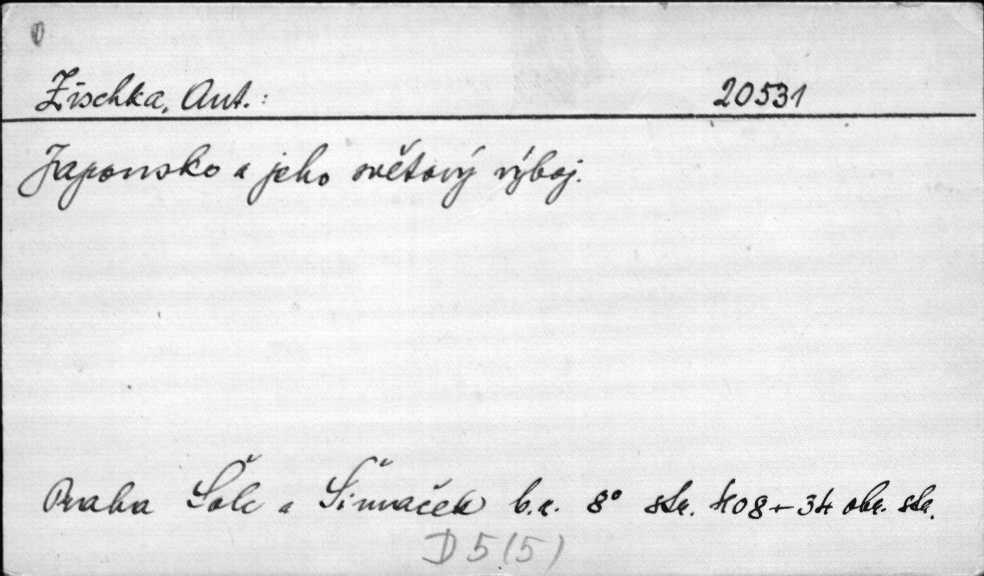 Zischka, Ant.: 20531
Japonsko a jeho světový výboj.
Praha Šolc a Šimáček b.r. 8° str. 408+34 obr. str.
D 5 (5)